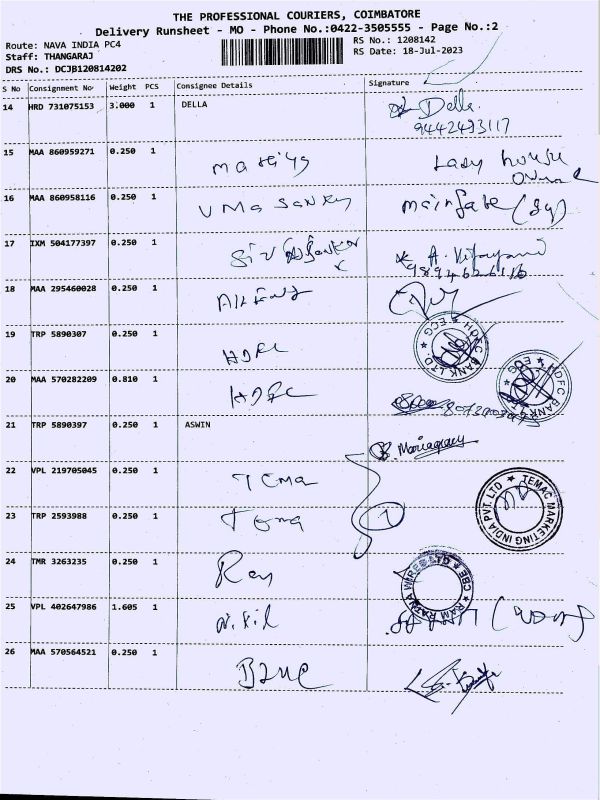 THE PROFESSIONAL COURIERS, COIMBATORE
Delivery Runsheet - MO - Phone No.:0422-3505555 - Page No.:2
Route: NAVA INDIA PC4
RS No.: 1208142
Staff: THANGARAJ
RS Date: 18-Jul-2023
DRS No.: DCJB120814202
S No Consignment No Weight PCS Consignee Details Signature
14 HRD 731075153 3.000 1 DELLA Della
9442493117
15 MAA 860959271 0.250 1 Lady house
16 MAA 860958116 0.250 1 UMA SANKER maingate (Sg)
17 IXM 504177397 0.250 1
18 MAA 295460028 0.250 1
19 TRP 5890307 0.250 1 HDFC
HDFC BANK LTD. ★ ECG ★
20 MAA 570282209 0.810 1 HDFC
HDFC BANK
21 TRP 5890397 0.250 1 ASWIN
22 VPL 219705045 0.250 1 TEMA
TEMAC MARKETING INDIA PVT. LTD ★
23 TRP 2593988 0.250 1 Tema
24 TMR 3263235 0.250 1 Ram
RAM RATNA WIRES LTD ★ CBE ★
25 VPL 402647986 1.605 1
26 MAA 570564521 0.250 1